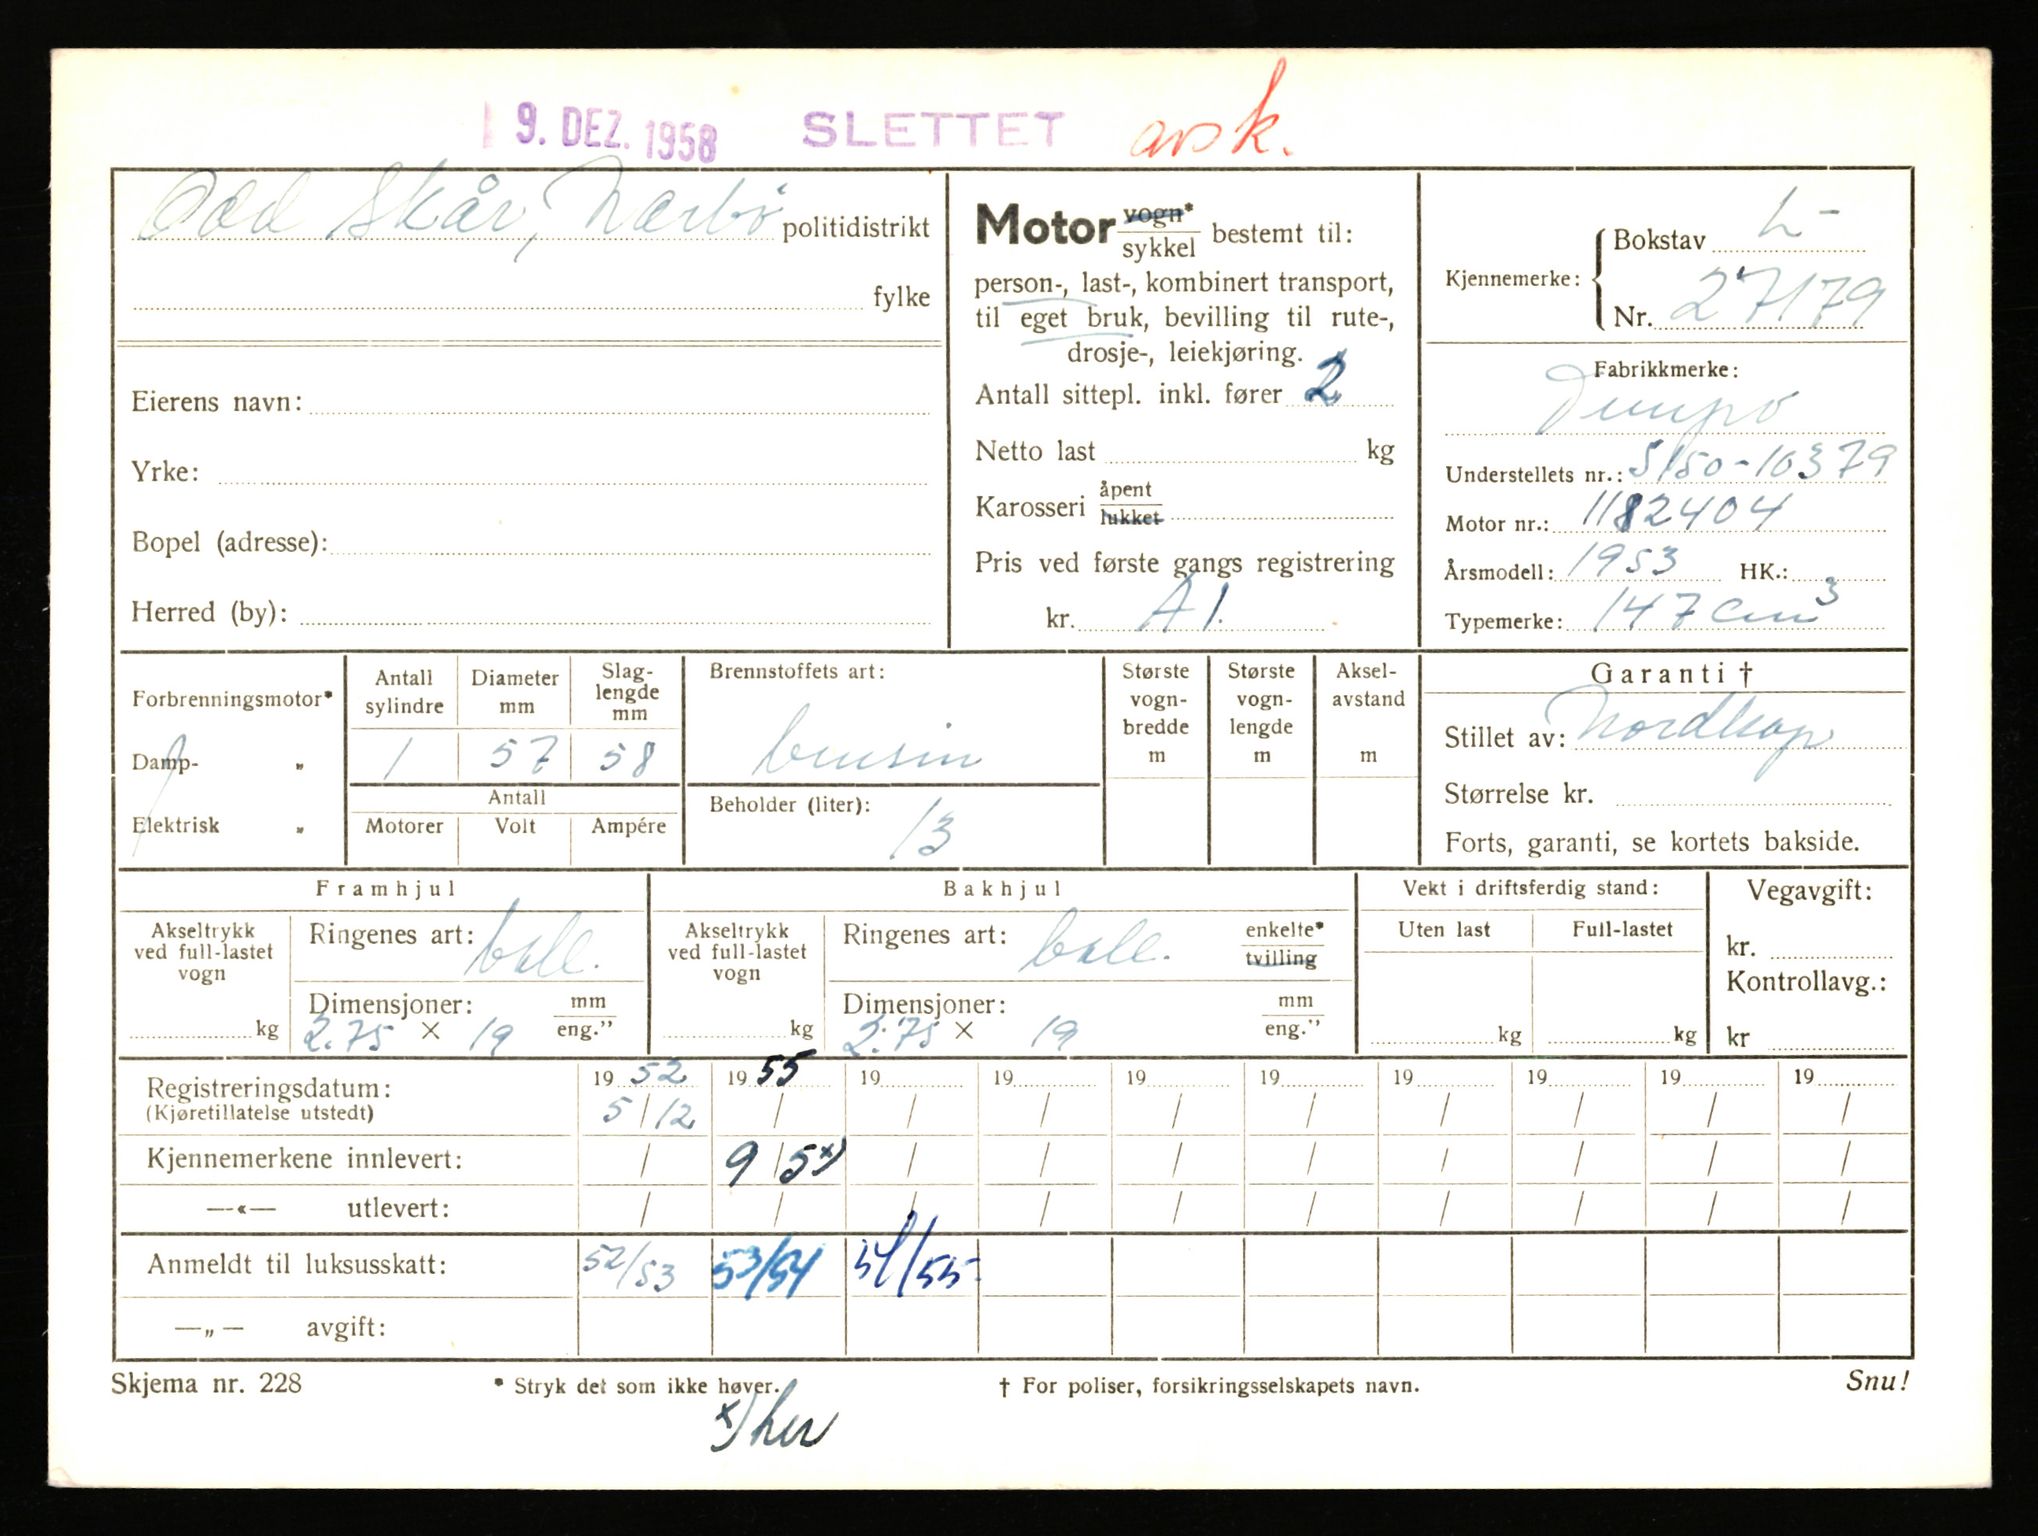 9. DEZ. 1958 SLETTET avsk.
Odd Skår, Nærbø politidistrikt
fylke
Eierens navn:
Yrke:
Bopel (adresse):
Herred (by):
Motor vogn* / sykkel bestemt til:
person-, last-, kombinert transport,
til eget bruk, bevilling til rute-,
drosje-, leiekjøring.
Antall sittepl. inkl. fører 2
Netto last kg
Karosseri åpent / lukket
Pris ved første gangs registrering
kr. A 1.
Kjennemerke: Bokstav L-
Nr. 27179
Fabrikkmerke:
Tempo
Understellets nr.: S150-10379
Motor nr.: 1182404
Årsmodell: 1953 HK.:
Typemerke: 147 cm³
Forbrenningsmotor*
Damp- „
Elektrisk „
Antall sylindre
1
Diameter mm
57
Slag-lengde mm
58
Antall
Motorer Volt Ampére
Brennstoffets art:
bensin
Beholder (liter):
13
Største vogn-bredde m
Største vogn-lengde m
Aksel-avstand m
Garanti †
Stillet av: Nordkap
Størrelse kr.
Forts, garanti, se kortets bakside.
Framhjul
Akseltrykk ved full-lastet vogn
kg
Ringenes art: ball.
Dimensjoner: mm / eng.”
2.75 × 19
Bakhjul
Akseltrykk ved full-lastet vogn
kg
Ringenes art: ball. enkelte* / tvilling
Dimensjoner: mm / eng.”
2.75 × 19
Vekt i driftsferdig stand:
Uten last Full-lastet
kg kg
Vegavgift:
kr.
Kontrollavg.:
kr
Registreringsdatum: 19 52 19 55 19 19 19 19 19 19 19 19
(Kjøretillatelse utstedt) 5/12 / / / / / / / / /
Kjennemerkene innlevert: / 9/5 x) / / / / / / / /
—«— utlevert: / / / / / / / / / /
Anmeldt til luksusskatt: 52/53 53/54 54/55
—„— avgift:
Skjema nr. 228 * Stryk det som ikke høver. † For poliser, forsikringsselskapets navn. Snu!
x) her